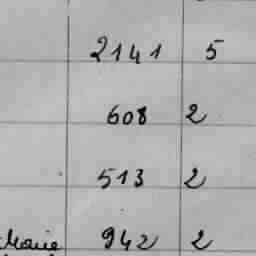 2141 5
608 2
513 2
942 2